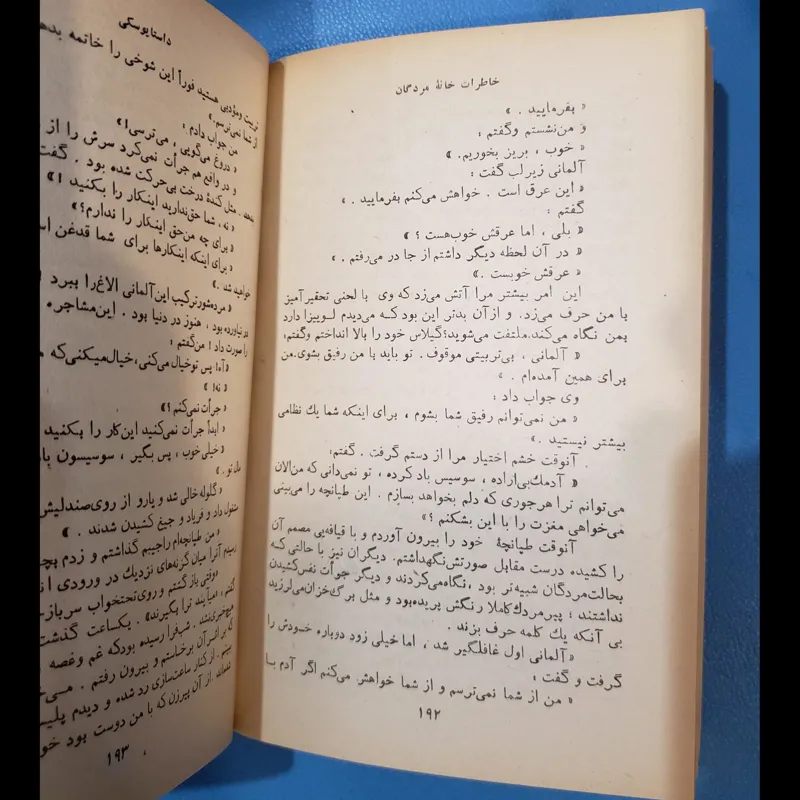 خاطرات خانهٔ مردگان
« بفرمایید . »
و من‌نشستم وگفتم :
« خوب ، بریز بخوریم. »
آلمانی زیرلب گفت :
« این عرق است . خواهش می‌کنم بفرمایید . »
گفتم :
« بلی ، اما عرقش خوب‌هست ؟ »
« در آن لحظه دیگر داشتم از جا در می‌رفتم . »
« عرقش خوبست . »
این امر بیشتر مرا آتش می‌زد که وی با لحنی تحقیرآمیز
با من حرف می‌زد. و ازآن بدتر این بود کـه می‌دیدم لـوییزا دارد
بمن نگاه می‌کند.ملتفت می‌شوید؟گیلاس خود را بالا انداختم وگفتم:
« آلمانی ، بی‌تربیتی موقوف . تو باید با من رفیق بشوی.من
برای همین آمده‌ام . »
وی جواب داد :
« من نمی‌توانم رفیق شما بشوم ، برای اینکه شما یك نظامی
بیشتر نیستید . »
آنوقت خشم اختیار مرا از دستم گرفت . گفتم:
« آدمك‌بی‌اراده ، سوسیس باد کرده ، تو نمی‌دانی که من‌الان
می‌توانم ترا هرجوری که دلم بخواهد بسازم . این طپانچه را می‌بینی
می‌خواهی مغزت را با این بشکنم ؟»
آنوقت طپانچهٔ خود را بیرون آوردم و با قیافه‌یی مصمم آن
را کشیده درست مقابل صورتش‌نگهداشتم. دیگران نیز با حالتی کـه
بحالت‌مردگان شبیه‌تر بود ، نگاه‌می‌کردند و دیگر جرأت نفس‌کشیدن
نداشتند ؛ پیرمردك‌کاملا رنگش پریده‌بود و مثل برگ‌خزان‌می‌لرزید
بی آنکه یك کلمه حرف بزند .
« آلمانی اول غافلگیر شد ، اما خیلی زود دوباره خـودش را
گرفت و گفت :
« من از شما نمی‌ترسم و از شما خواهش می‌کنم اگر آدم بـا
۱۹۲
داستایوسکی
تربیت ومؤدبی هستید فوراً این شوخی را خاتمه
از شما نمی‌ترسم.»
من جواب دادم :
« دروغ می‌گویی ، می‌ترسی!»
و در واقع هم جرأت نمی‌کرد سرش را از
مثل کندهٔ درخت بی‌حرکت شده بود .
« نه ، شما حق‌ندارید اینکار را بکنید !»
« برای چه من‌حق اینکار را ندارم؟»
« برای اینکه اینکارها برای شما قدغن
خواهید شد . »
« مرده‌شورترکیب این‌آلمانی الاغ‌را ببرد
در نیاورده بود ، هنوز در دنیا بود . این‌مشاجره
را صورت داد ! من‌گفتم :
« آها پس توخیال می‌کنی،خیال‌میکنی‌که
« نه!»
« جرأت نمی‌کنم ؟»
« ابداً جرأت نمی‌کنید این‌کار را بکنید
« خیلی خوب ، پس بگیر ، سوسیسون
مال تو . »
« گلوله خالی شد و یارو از روی‌صندلیش
داد و فریاد و جیغ کشیدن شدند . »
« من طپانچه‌ام راجیبم گذاشتم و زدم
آنرا میان گزنه‌های نزدیك در ورودی
« وقتی بازگشتم و روی‌تختخواب
ترا بگیرند» . یکساعت گذشت
شب‌فرا رسیده بودکه غم وغصه
برخاستم و بیرون رفتم .
از کنار ساعت‌سازی رد شده و دیدم
از آن پیرزن که با من دوست بود
۱۹۳